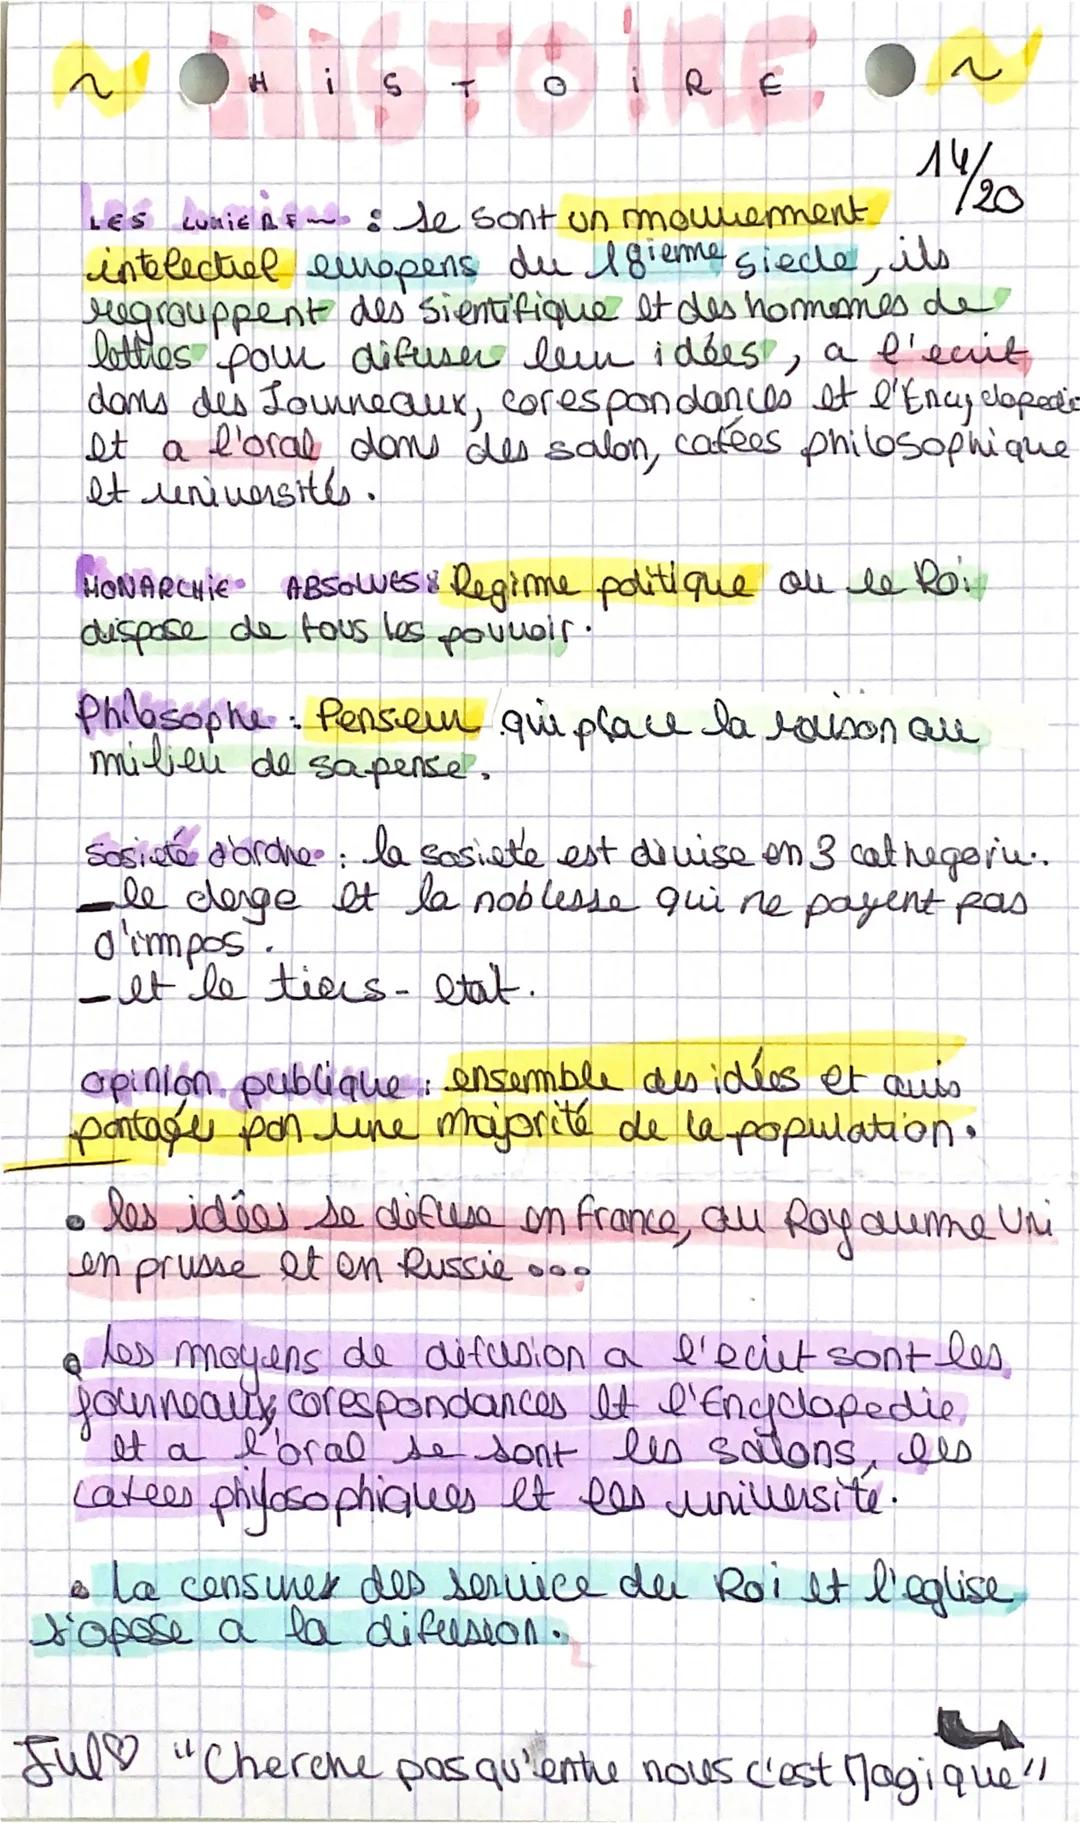 HISTOIRE
~ H i S T O i R E ~
14/20
LES LUMIERE~ : se sont un mouvement
intelectuel europens du 18ieme siecle, ils
regrouppent des sientifique et des homomes de
lettres pour difuser leur idées, a l'ecrit
dans des Journeaux, corespondances et l'Encyclopedie
et a l'oral dans des salon, cafées philosophique
et universités.
MONARCHiE ABSOLUES : Regime politique ou le Roi
dispose de tous les pouvoir.
Philosophe : Penseur qui place la raison au
milieu de sa pense.
Sosieté d'ordre : la sosiete est divise en 3 cathegorie.
- le clerge et la noblesse qui ne payent pas
d'impos.
- et le tiers-etat.
opinion publique : ensemble des idées et avis
partagés par une majorité de la population.
• les idées se difuse en france, au Royaume Uni
en prusse et en Russie ...
• les moyens de difusion a l'ecrit sont les
journeaux, corespondances et l'Encyclopedie
et a l'oral se sont les salons, les
cafées phylosophiques et les université.
• La censure des service du Roi et l'eglise
s'opose a la difusion.
Jul♡ "Cherche pas qu'entre nous c'est Magique"